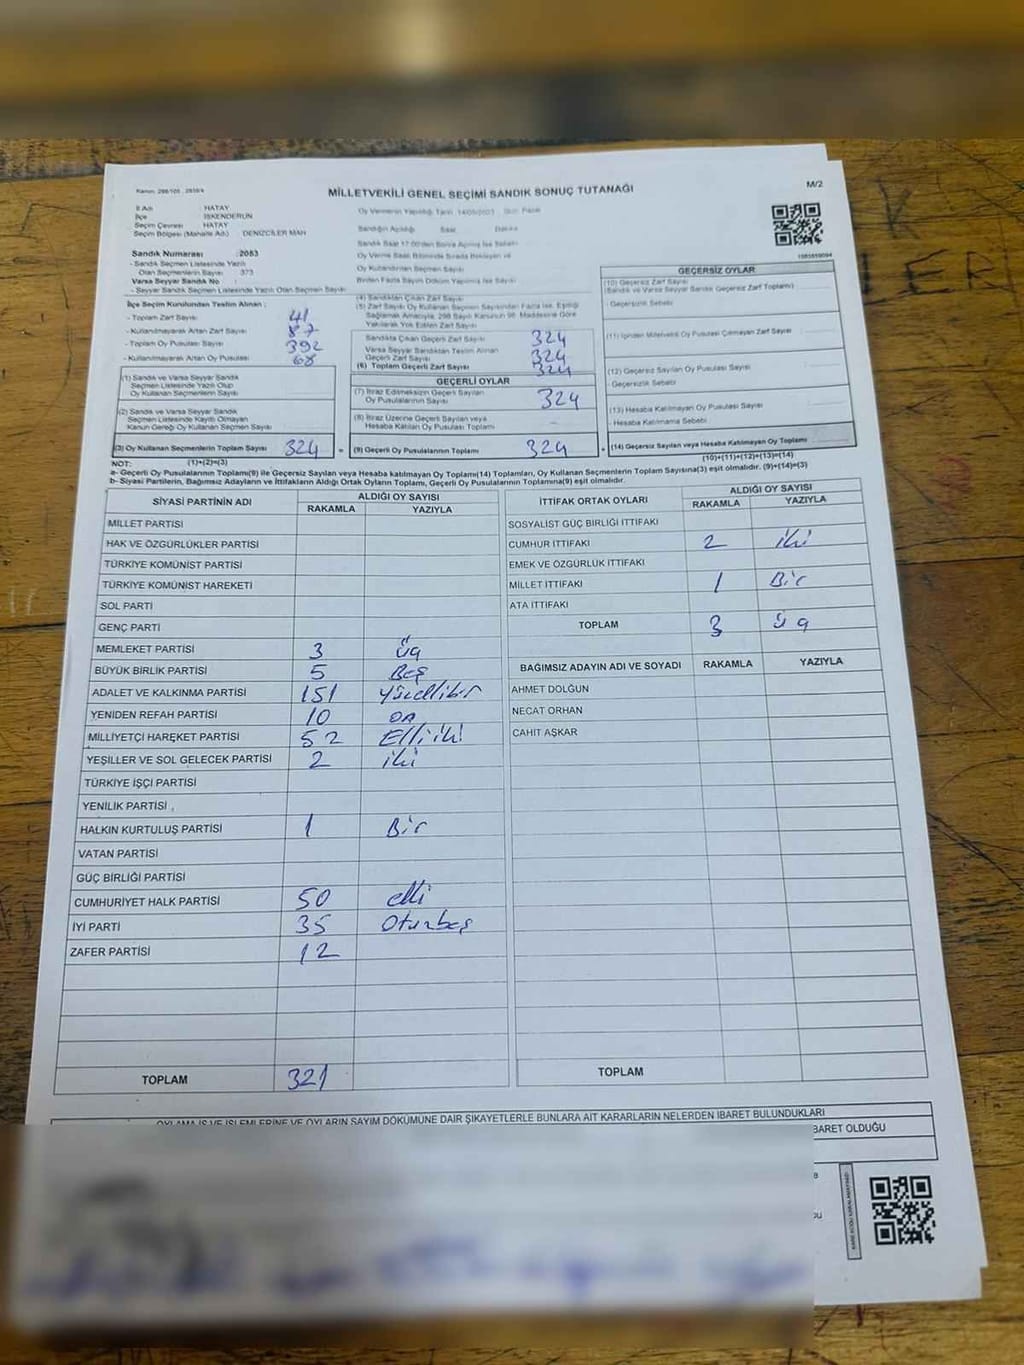 Kanun: 298/105 , 2839/4
MİLLETVEKİLİ GENEL SEÇİMİ SANDIK SONUÇ TUTANAĞI
M/2
İl Adı HATAY
İlçe İSKENDERUN
Seçim Çevresi HATAY
Seçim Bölgesi (Mahalle Adı) DENİZCİLER MAH
Oy Vermenin Yapıldığı Tarih 14/05/2023 Gün Pazar
Sandığın Açıldığı Saat Dakika
Sandık Numarası :2083
- Sandık Seçmen Listesinde Yazılı
Olan Seçmenlerin Sayısı 373
Varsa Seyyar Sandık No :
- Seyyar Sandık Seçmen Listesinde Yazılı Olan Seçmen Sayısı
Oy Kullandırılan Seçmen Sayısı
İlçe Seçim Kurulundan Teslim Alınan ;
- Toplam Zarf Sayısı 41
- Kullanılmayarak Artan Zarf Sayısı 87
- Toplam Oy Pusulası Sayısı 392
- Kullanılmayarak Artan Oy Pusulası 68
(1) Sandık ve Varsa Seyyar Sandık
Seçmen Listesinde Yazılı Olup
Oy Kullanan Seçmenlerin Sayısı
(2) Sandık ve Varsa Seyyar Sandık
Seçmen Listesinde Kayıtlı Olmayan
Kanun Gereği Oy Kullanan Seçmen Sayısı
(3) Oy Kullanan Seçmenlerin Toplam Sayısı 324 =
(1)+(2)=(3)
(4) Sandıktan Çıkan Zarf Sayısı
(5) Zarf Sayısı Oy Kullanan Seçmen Sayısından Fazla İse, Eşitliği
Sağlamak Amacıyla, 298 Sayılı Kanunun 98. Maddesine Göre
Yakılarak Yok Edilen Zarf Sayısı
Sandıkta Çıkan Geçerli Zarf Sayısı 324
Varsa Seyyar Sandıktan Teslim Alınan
Geçerli Zarf Sayısı 324
(6) Toplam Geçerli Zarf Sayısı 324
GEÇERLİ OYLAR
(7) İtiraz Edilmeksizin Geçerli Sayılan
Oy Pusulalarının Sayısı 324
(8) İtiraz Üzerine Geçerli Sayılan veya
Hesaba Katılan Oy Pusulası Toplamı
(9) Geçerli Oy Pusulalarının Toplamı 324 +
GEÇERSİZ OYLAR
(10) Geçersiz Zarf Sayısı
(Sandık ve Varsa Seyyar Sandık Geçersiz Zarf Toplamı)
- Geçersizlik Sebebi
(12) Geçersiz Sayılan Oy Pusulası Sayısı
- Geçersizlik Sebebi
(13) Hesaba Katılmayan Oy Pusulası Sayısı
- Hesaba Katılmama Sebebi
(14) Geçersiz Sayılan veya Hesaba Katılmayan Oy Toplamı
(10)+(11)+(12)+(13)=(14)
NOT:
a- Geçerli Oy Pusulalarının Toplamı(9) ile Geçersiz Sayılan veya Hesaba katılmayan Oy Toplamı(14) Toplamları, Oy Kullanan Seçmenlerin Toplam Sayısına(3) eşit olmalıdır. (9)+(14)=(3)
b- Siyasi Partilerin, Bağımsız Adayların ve İttifakların Aldığı Oyların Toplamı, Geçerli Oy Pusulalarının Toplamına(9) eşit olmalıdır.
SİYASİ PARTİNİN ADI ALDIĞI OY SAYISI
RAKAMLA YAZIYLA
MİLLET PARTİSİ
HAK VE ÖZGÜRLÜKLER PARTİSİ
TÜRKİYE KOMÜNİST PARTİSİ
TÜRKİYE KOMÜNİST HAREKETİ
SOL PARTİ
GENÇ PARTİ
MEMLEKET PARTİSİ 3 üç
BÜYÜK BİRLİK PARTİSİ 5 Beş
ADALET VE KALKINMA PARTİSİ 151 yüzellibir
YENİDEN REFAH PARTİSİ 10 on
MİLLİYETÇİ HAREKET PARTİSİ 52 Elliiki
YEŞİLLER VE SOL GELECEK PARTİSİ 2 iki
TÜRKİYE İŞÇİ PARTİSİ
YENİLİK PARTİSİ
HALKIN KURTULUŞ PARTİSİ 1 Bir
VATAN PARTİSİ
GÜÇ BİRLİĞİ PARTİSİ
CUMHURİYET HALK PARTİSİ 50 elli
İYİ PARTİ 35 Oturbeş
ZAFER PARTİSİ 12
TOPLAM 321
İTTİFAK ORTAK OYLARI ALDIĞI OY SAYISI
RAKAMLA YAZIYLA
SOSYALİST GÜÇ BİRLİĞİ İTTİFAKI
CUMHUR İTTİFAKI 2 iki
EMEK VE ÖZGÜRLÜK İTTİFAKI
MİLLET İTTİFAKI 1 Bir
ATA İTTİFAKI
TOPLAM 3 üç
BAĞIMSIZ ADAYIN ADI VE SOYADI RAKAMLA YAZIYLA
AHMET DOLĞUN
NECAT ORHAN
CAHİT AŞKAR
TOPLAM
OYLAMA İŞ VE İŞLEMLERİNE VE OYLARIN SAYIM DÖKÜMÜNE DAİR ŞİKAYETLERLE BUNLARA AİT KARARLARIN NELERDEN İBARET BULUNDUKLARI
BARET OLDUĞU